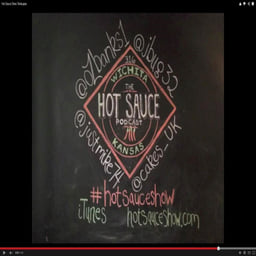 @ozbanks1
@jbug32
WICHITA
THE
HOT SAUCE
PODCAST
KANSAS
@justmike74
@cakes_UK
#hotsauceshow
iTunes
hotsauceshow.com